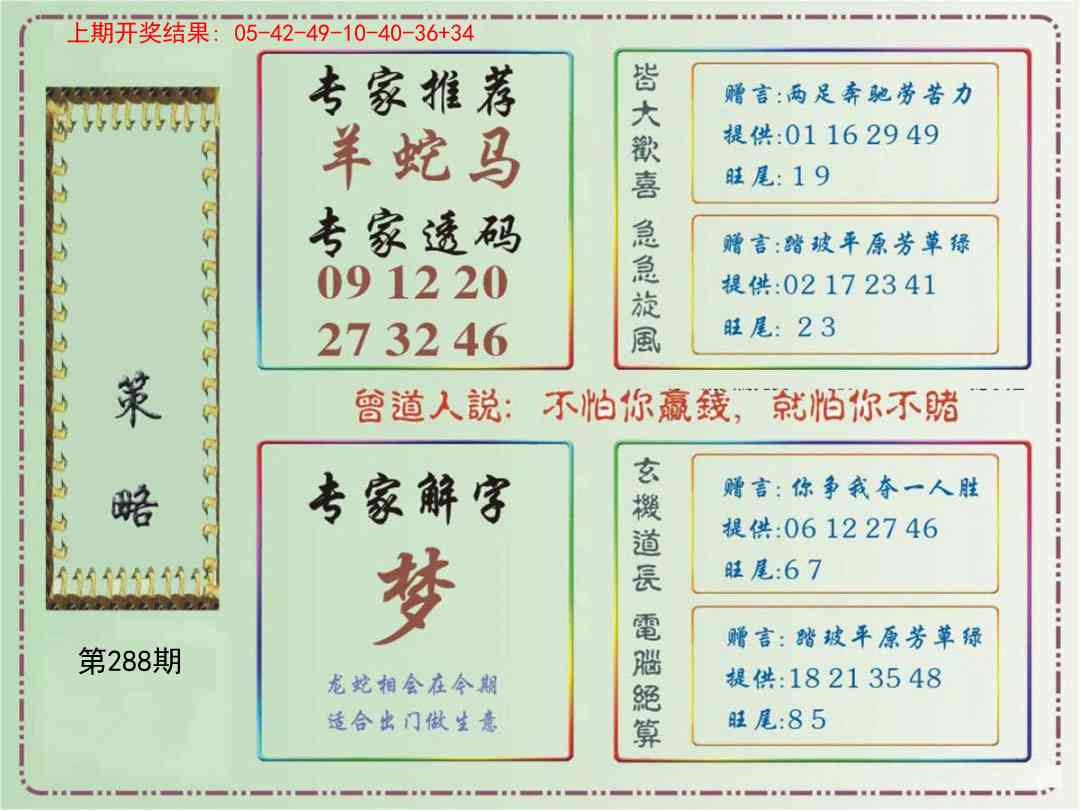 上期开奖结果: 05-42-49-10-40-36+34
策略
第288期
专家推荐
羊蛇马
专家透码
09 12 20
27 32 46
皆大歡喜
赠言:两足奔驰劳苦力
提供:01 16 29 49
旺尾: 1 9
急急旋風
赠言:踏玻平原芳草绿
提供:02 17 23 41
旺尾: 2 3
曾道人説: 不怕你贏錢, 就怕你不賭
专家解字
梦
龙蛇相会在今期
适合出门做生意
玄機道長
赠言: 你争我夺一人胜
提供:06 12 27 46
旺尾:6 7
電腦絕算
赠言: 踏玻平原芳草绿
提供:18 21 35 48
旺尾:8 5